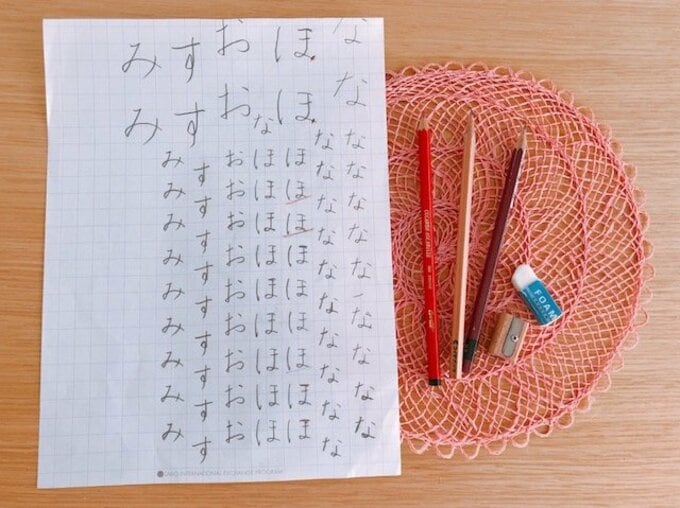 なな
ほほ
おお
すす
みみ
ななななななななな
なななななななななな
ほほほほほほほほほ
なほほほほほほほほほ
おおおおおおおおお
すすすすすすすすす
みみみみみみみみみ
LABO INTERNATIONAL EXCHANGE PROGRAM
FOAM